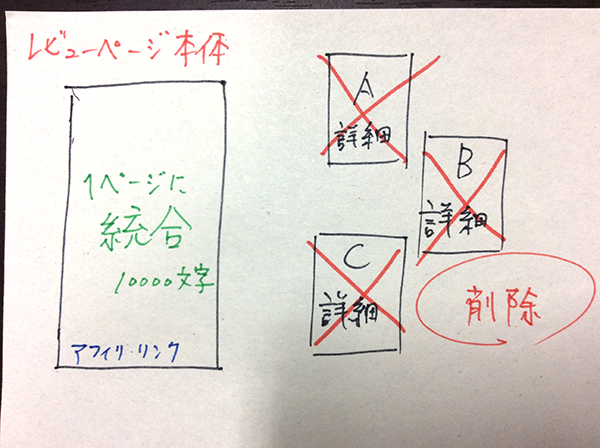 レビューページ本体
1ページに
統合
10000文字
アフィリ・リンク
A
詳細
B
詳細
C
詳細
削除